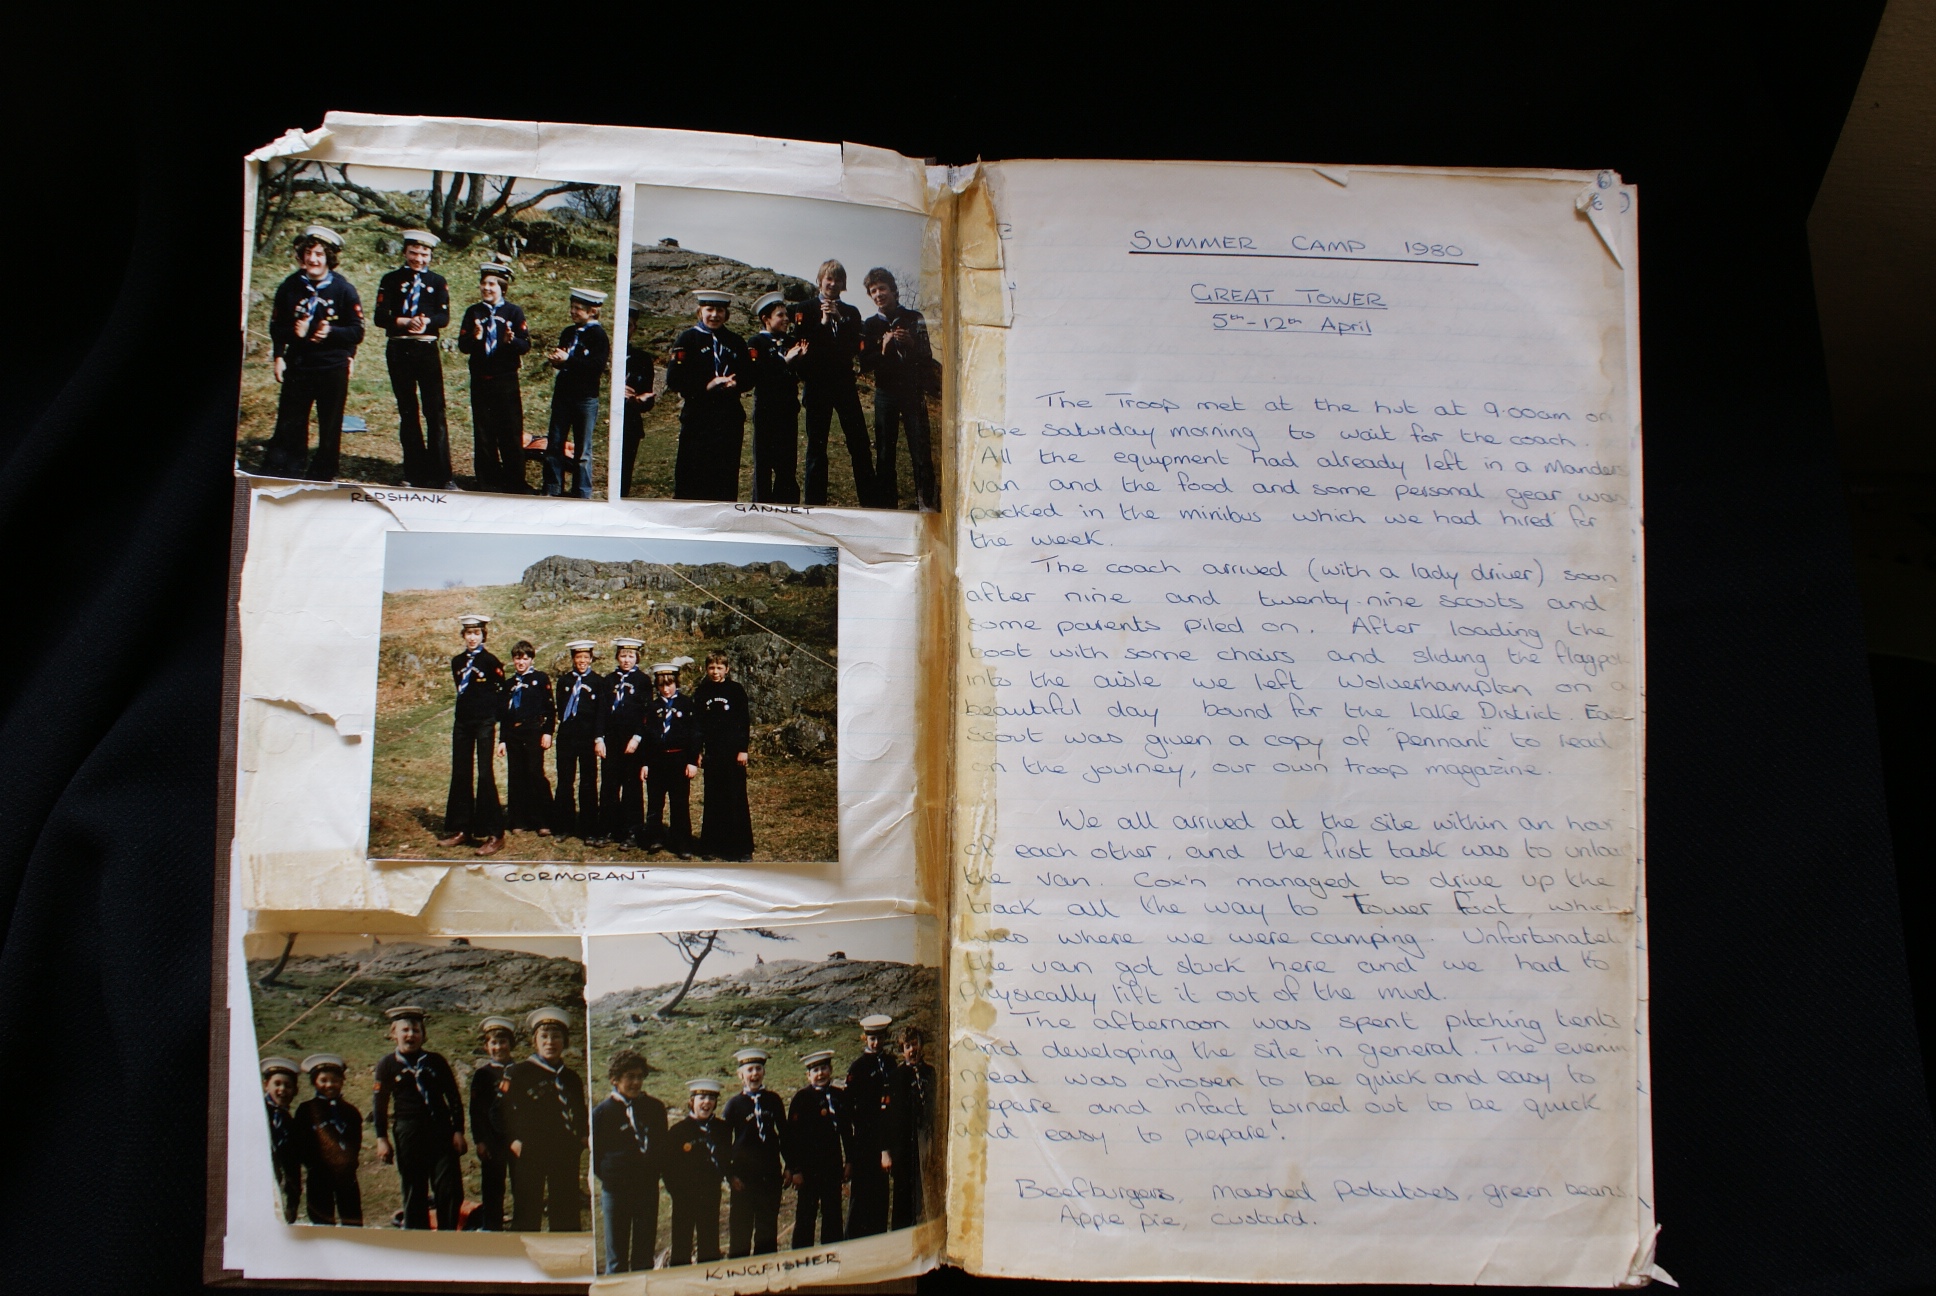 REDSHANK
GANNET
CORMORANT
KINGFISHER
SUMMER CAMP 1980
GREAT TOWER
5th-12th April
The Troop met at the hut at 9.00am on
the saturday morning to wait for the coach.
All the equipment had already left in a Manders
van and the food and some personal gear was
packed in the minibus which we had hired for
the week.
The coach arrived (with a lady driver) soon
after nine and twenty-nine scouts and
some parents piled on. After loading the
boot with some chairs and sliding the flagpol
into the aisle we left Wolverhampton on a
beautiful day bound for the Lake District. Eac
scout was given a copy of "pennant" to read
on the journey, our own troop magazine.
We all arrived at the site within an hour
of each other, and the first task was to unloa
the van. Cox'n managed to drive up the
track all the way to Tower Foot, which
was where we were camping. Unfortunatel
the van got stuck here and we had to
physically lift it out of the mud.
The afternoon was spent pitching tents
and developing the site in general. The evenin
meal was chosen to be quick and easy to
prepare and infact turned out to be quick
and easy to prepare!
Beefburgers, mashed potatoes, green beans,
Apple pie, custard.